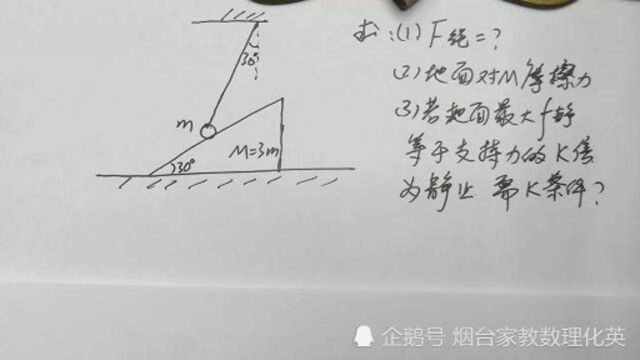 求:(1) F绳=?
30°
(2)地面对M摩擦力
m
(3)若地面最大f静
M=3m
等于支持力的K倍
30°
为静止 需K条件?
企鹅号 烟台家教数理化英